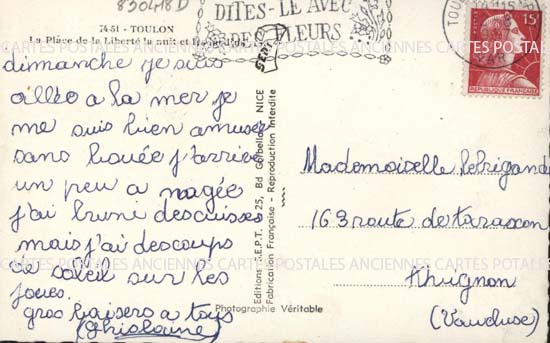 830418D
DITES-LE AVEC
DES FLEURS
74-51 - TOULON
La Place de la Liberté la nuit et
TOULON
VAR
15F
REPUBLIQUE FRANÇAISE
SEPT
dimanche je suis
allée a la mer je
me suis bien amusée
sans bouée j'arrive
un peu a nagée
j'ai bruni des cuisses
mais j'ai des coups
de soleil sur les
joues.
gros baisers a tous
(Ghislaine)
Editions S.E.P.T. 25, Bd Gorbella - NICE
Fabrication Française - Reproduction Interdite
Photographie Véritable
Mademoiselle
163 route de tarascon
Avignon
(Vaucluse)
CARTES POSTALES ANCIENNES CARTES POSTALES ANCIENNES CARTES POSTALES ANCIENNES